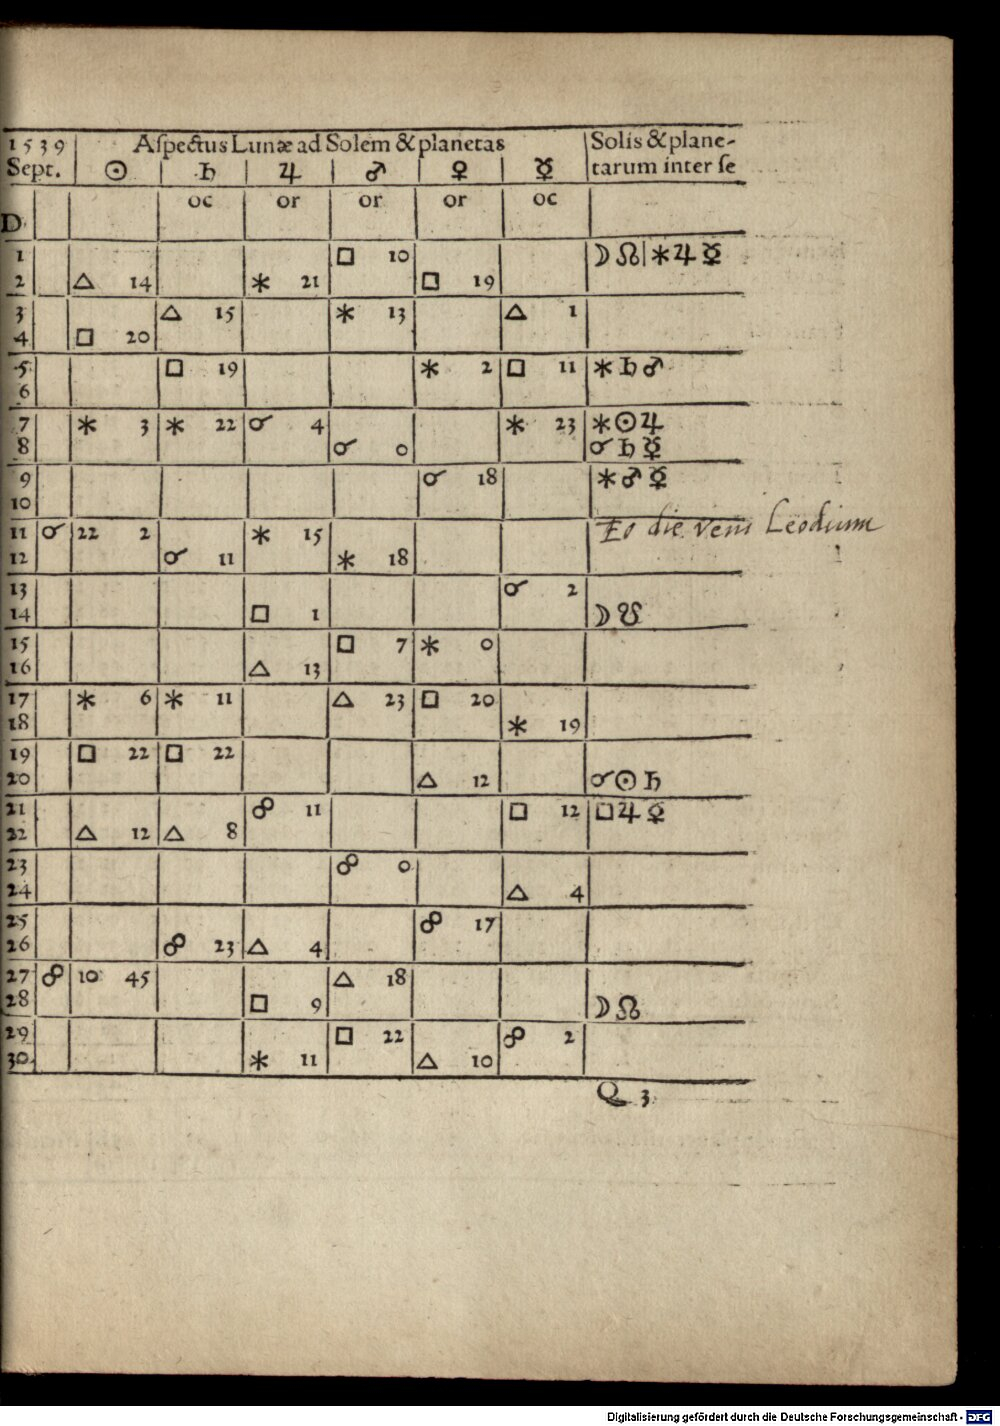 1539 Aſpectus Lunæ ad Solem & planetas Solis & plane-
Sept. ☉ ♄ ♃ ♂ ♀ ☿ tarum inter ſe
oc or or or oc
D
1 □ 10 ☽ ☊ | ⚹ ♃ ☿
2 △ 14 ⚹ 21 □ 19
3 △ 15 ⚹ 13 △ 1
4 □ 20
5 □ 19 ⚹ 2 □ 11 ⚹ ♄ ♂
6
7 ⚹ 3 ⚹ 22 ☌ 4 ⚹ 23 ⚹ ☉ ♃
8 ☌ 0 ☌ ♄ ☿
9 ☌ 18 ⚹ ♂ ☿
10
11 ☌ 22 2 ⚹ 15 Eo die veni Leodium
12 ☌ 11 ⚹ 18
13 ☌ 2
14 □ 1 ☽ ☋
15 □ 7 ⚹ 0
16 △ 13
17 ⚹ 6 ⚹ 11 △ 23 □ 20
18 ⚹ 19
19 □ 22 □ 22
20 △ 12 ☌ ☉ ♄
21 ☍ 11 □ 12 □ ♃ ♀
22 △ 12 △ 8
23 ☍ 0
24 △ 4
25 ☍ 17
26 ☍ 23 △ 4
27 ☍ 10 45 △ 18
28 □ 9 ☽ ☊
29 □ 22 ☍ 2
30 ⚹ 11 △ 10
Q 3
Digitalisierung gefördert durch die Deutsche Forschungsgemeinschaft - DFG